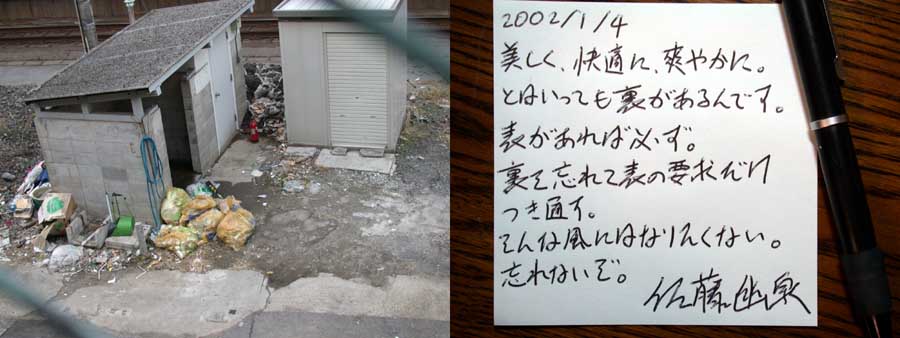 2002/1/4
美しく、快適に、爽やかに。
とはいっても裏があるんです。
表があれば必ず。
裏を忘れて表の要求だけ
つき通す。
そんな風にはなりたくない。
忘れないぞ。
佐藤幽泉